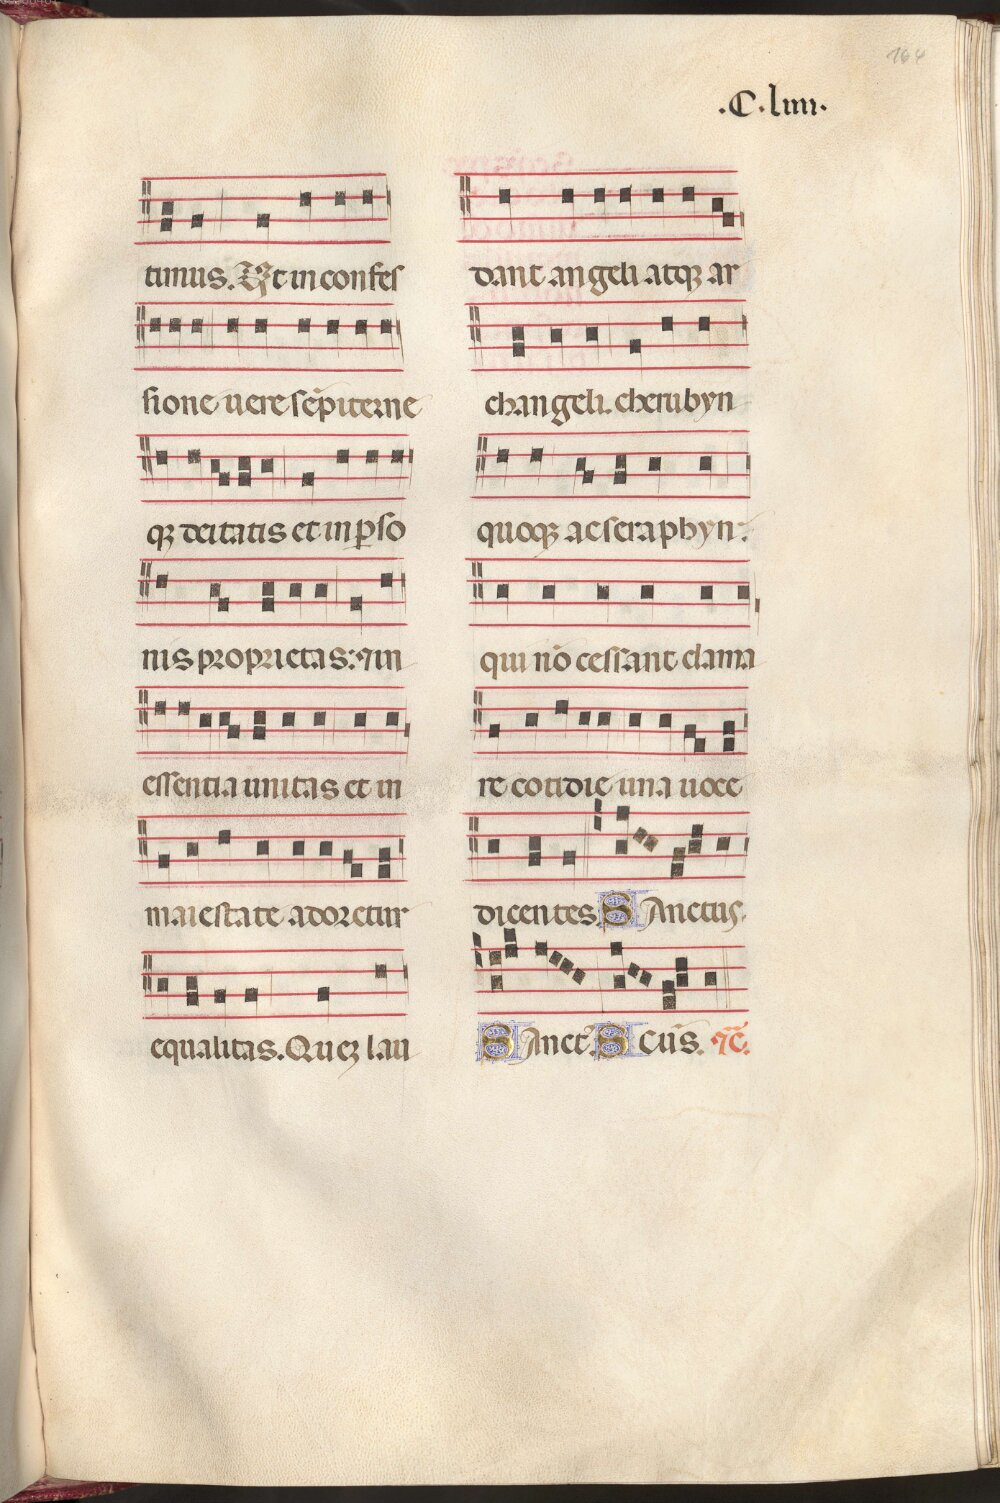 164
.C.liiii.
timus. Ut in confes
sione uere sẽpiterne
qꝫ deitatis et in ꝑso
nis proprietas: ⁊ in
essentia unitas et in
maiestate adoretur
equalitas. Quez lau
dant angeli atqꝫ ar
changeli. cherubyn
quoqꝫ ac seraphyn:
qui nõ cessant clama
re cotidie una uoce
dicentes. Sanctus.
Sanct᾽. Scũs. ⁊c̃.